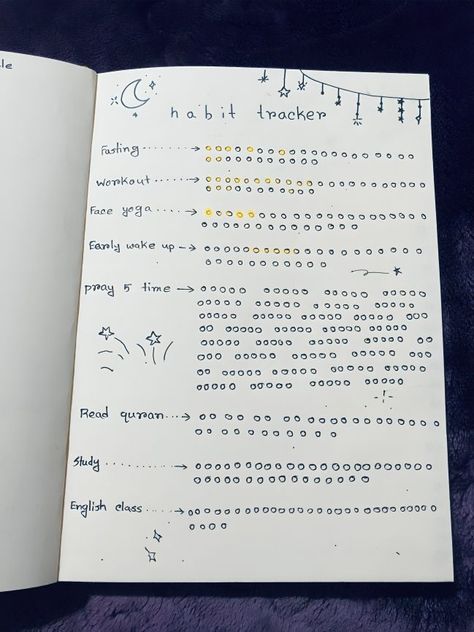 le
habit tracker
Fasting
workout
Face yoga
Early wake up
pray 5 time
Read quran
Study
English class